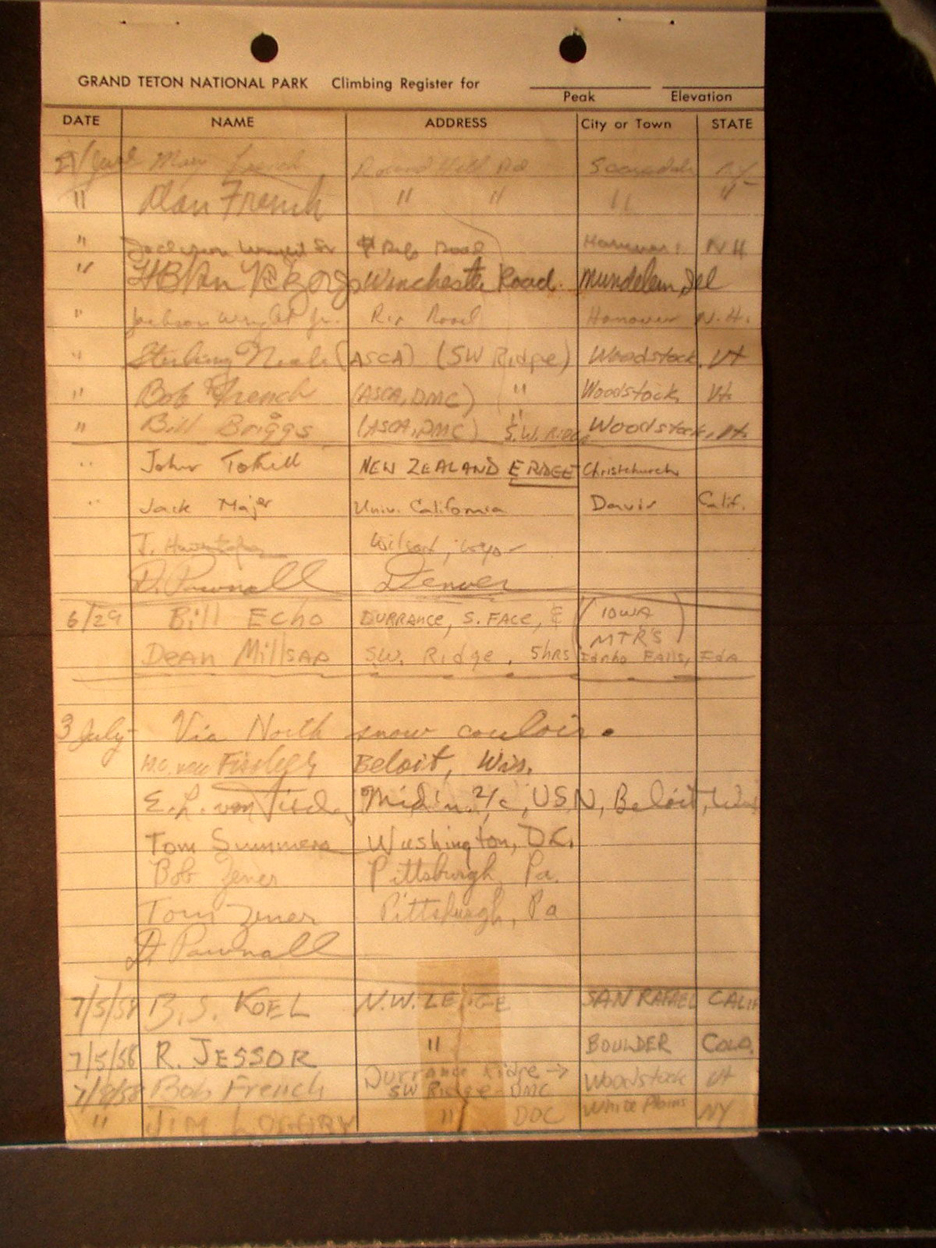 GRAND TETON NATIONAL PARK Climbing Register for
Peak Elevation
DATE NAME ADDRESS City or Town STATE
French Rd N.Y.
" Alan French " " " "
" Road Hanover N.H.
" Winchester Road. Mundelein Ill
" Jackson Wright Jr. Rip Road Hanover N.H.
" Sterling Neale (ASCA) (SW Ridge) Woodstock, Vt
" Bob French (ASCA, DMC) " Woodstock, Vt.
" Bill Briggs (ASCA, DMC) S.W. RIDGE Woodstock, Vt.
" John NEW ZEALAND E RIDGE Christchurch
" Jack Major Univ. California Davis Calif.
J.
D. Pownall Denver
6/29 Bill Echo DURRANCE, S. FACE, E (IOWA
MTR'S)
Dean Millsap S.W. Ridge, 5hrs Idaho Falls, Ida
3 July Via North snow couloir.
Beloit, Wis.
E. L. von Mid'n 2/c, USN, Beloit, Wis
Tom Summers Washington, D.C.
Bob Zener Pittsburgh, Pa.
Tom Zener Pittsburgh, Pa
D. Pownall
7/5/58 B.S. KOEL N.W. LEDGE SAN RAFAEL CALIF
7/5/58 R. JESSOR " BOULDER COLO.
7/9/58 Bob French Durrance Ridge → Woodstock Vt
SW Ridge - DMC
" JIM " DOC White Plains NY